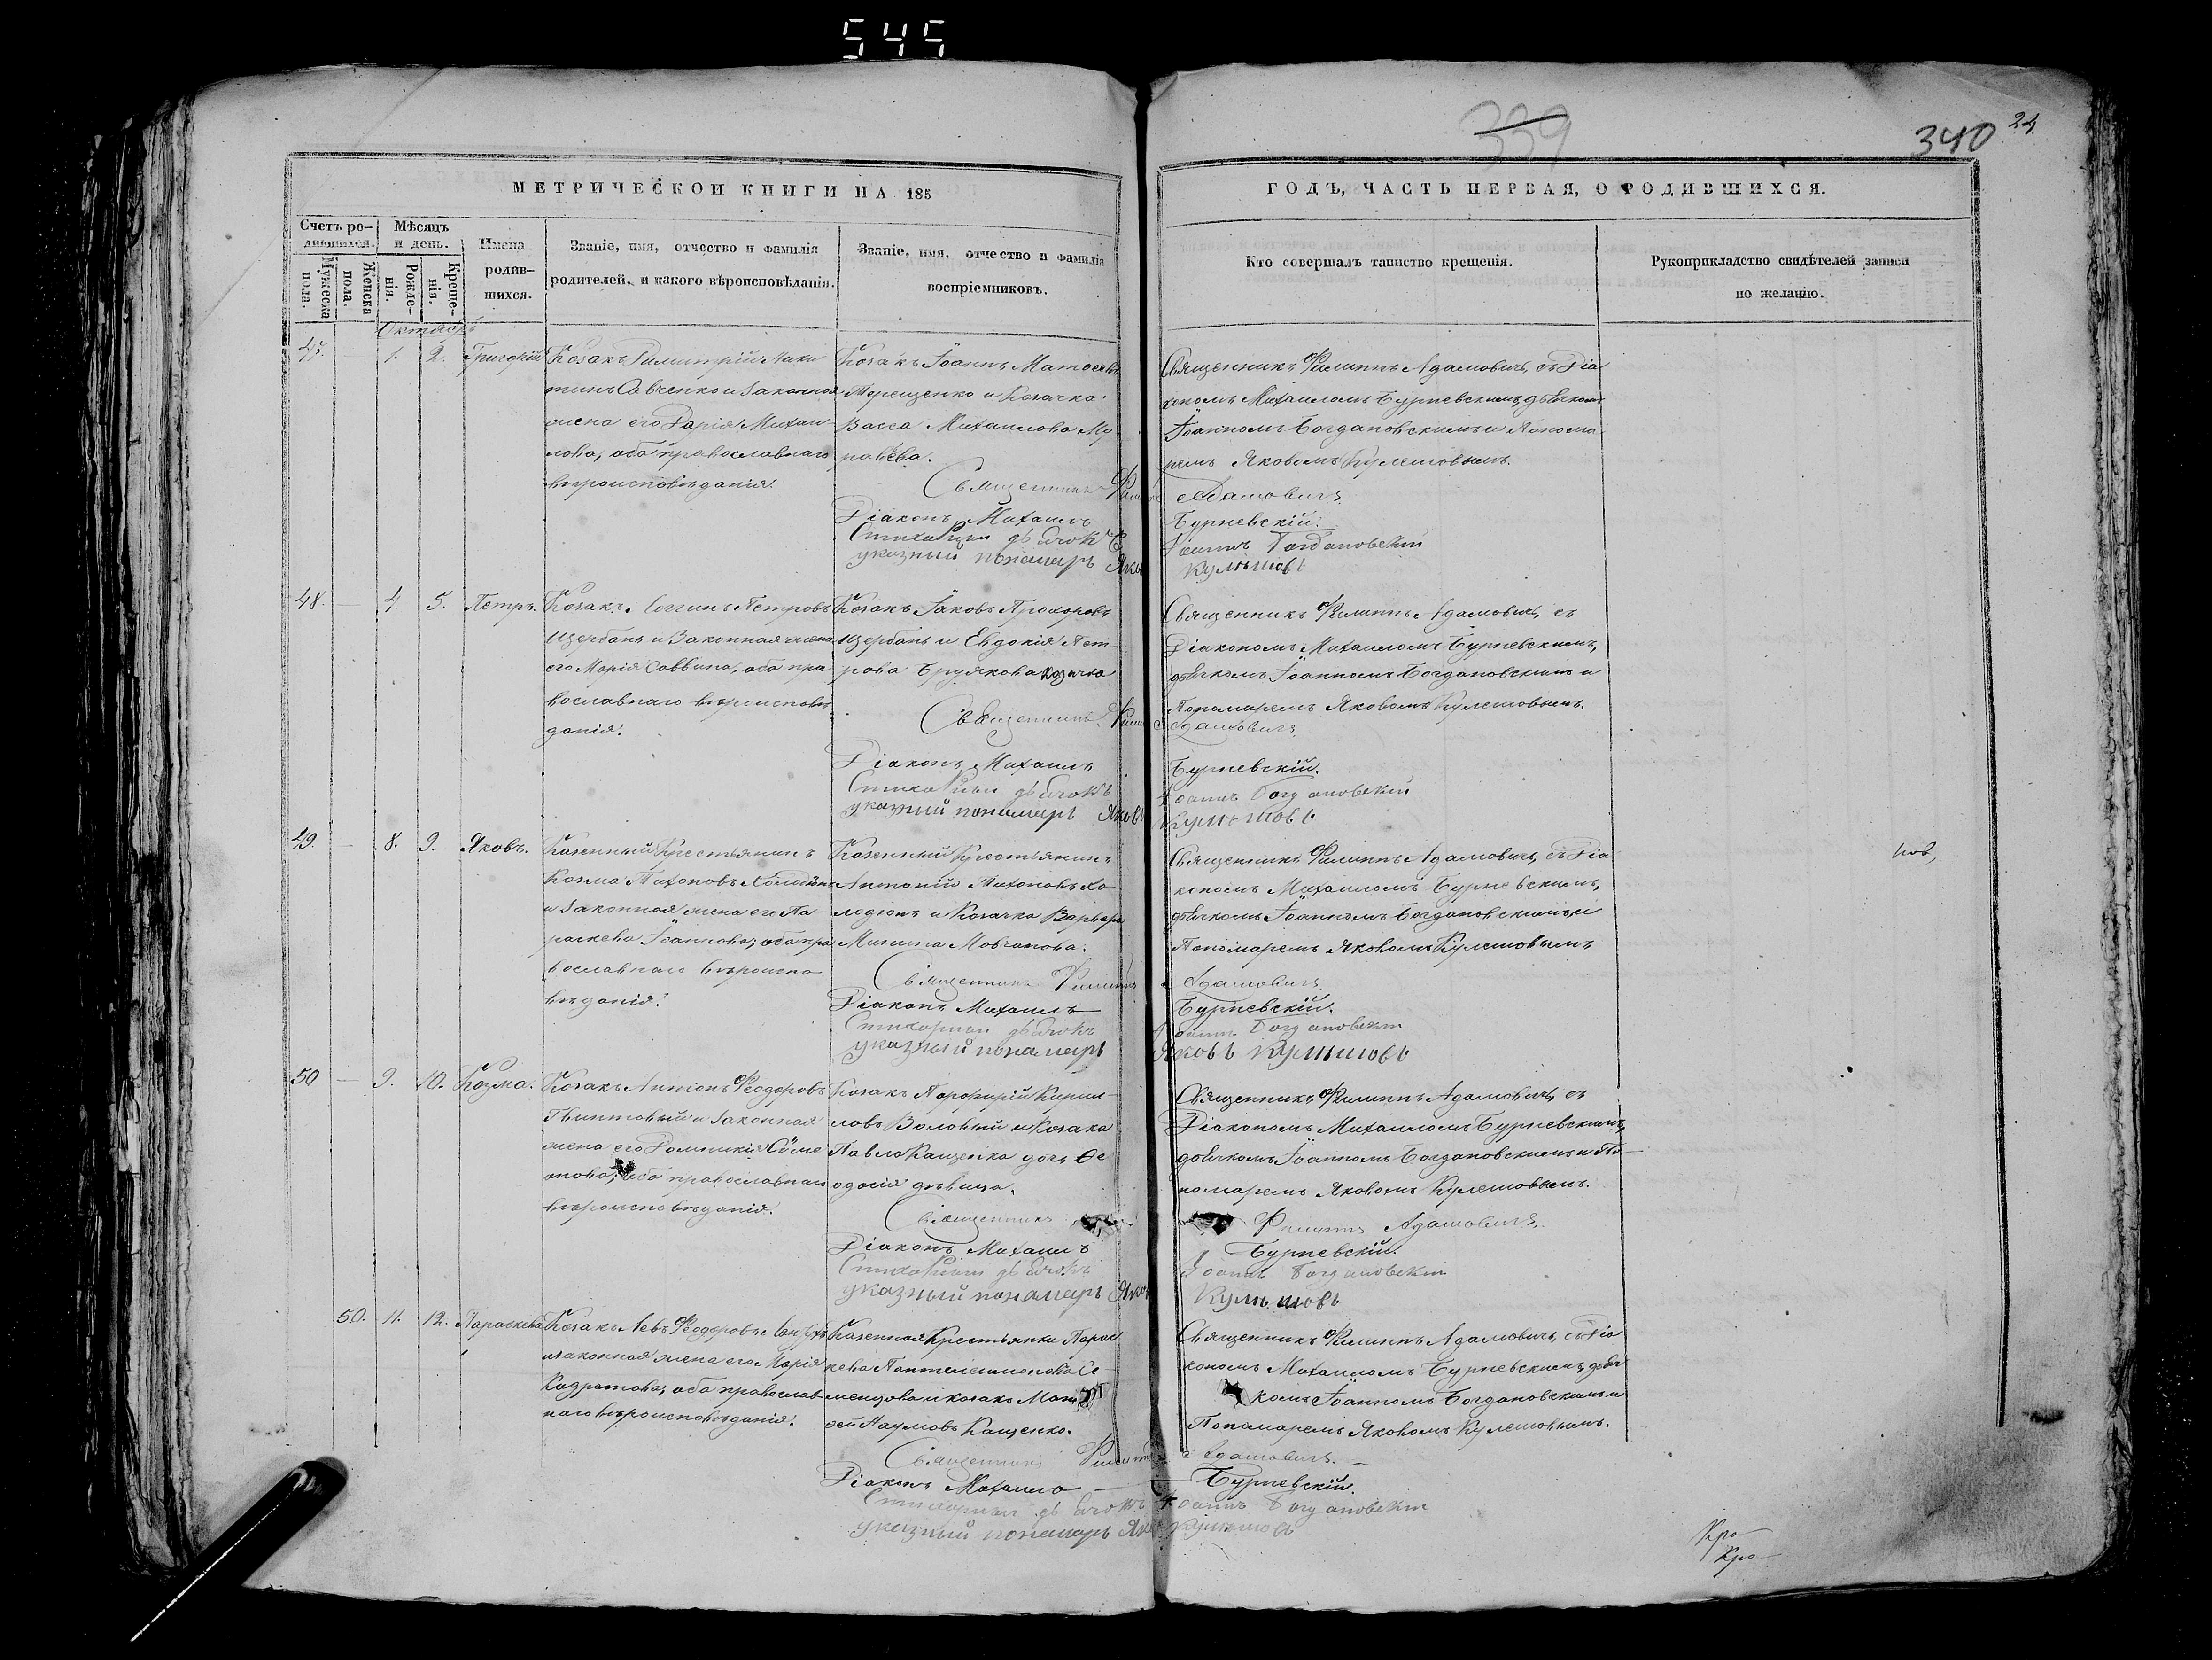 545
339
340
24
МЕТРИЧЕСКОЙ КНИГИ НА 185
ГОДЪ, ЧАСТЬ ПЕРВАЯ, О РОДИВШИХСЯ.
Счетъ ро-
дившихся.
Мужеска
пола.
Женска
пола.
Мѣсяцъ
и день.
Рожде-
нія.
Креще-
нія.
Имена
родив-
шихся.
Званіе, имя, отчество и фамилія
родителей, и какого вѣроисповѣданія.
Званіе, имя, отчество и фамилія
воспріемниковъ.
Кто совершалъ таинство крещенія.
Рукоприкладство свидѣтелей записи
по желанію.
Октябрь
1. 2. Григорій
Козакъ Димитрій Ники
тинъ Савченко и законная
жена его Дарія Михаи
лова, оба православнаго
вѣроисповѣданія.
Козакъ Іоаннъ
Терещенко и Козачка
Васса Михаилова Му
равьева.
Священникъ Филиппъ Адамовичъ, съ Діа
кономъ Михаиломъ Бурневскимъ, дьячкомъ
Іоанномъ Богдановскимъ и Понома
ремъ Яковомъ Кулешовымъ.
Священникъ Адамовичъ
Діаконъ Михаилъ Бурневскій.
дьячокъ Іоаннъ Богдановскій
указный пономарь Кулешовъ
48. — 4. 5. Петръ.
Козакъ Логгинъ Петровъ
Щербань и Законная жена
его Марія Саввина, оба пра
вославнаго вѣроисповѣ
данія.
Козакъ Іаковъ Прохоровъ
Щербань и Евдокія Пет-
рова Бруякова козачка
Священникъ Филиппъ Адамовичъ, съ
Діакономъ Михаиломъ Бурневскимъ,
дьячкомъ Іоанномъ Богдановскимъ и
Пономаремъ Яковомъ Кулешовымъ.
Священникъ Адамовичъ
Діаконъ Михаилъ Бурневскій.
дьячокъ Іоаннъ Богдановскій
указный пономарь Яковъ Кулешовъ
49. — 8. 9. Яковъ.
Казенный Крестьянинъ
Козма Тихоновъ
и законная жена его Па-
раскева Іоаннова, оба пра
вославнаго вѣроиспо
вѣданія.
Казенный Крестьянинъ
Антоній Тихоновъ Хо-
лодюнъ и Козачка Варвара
Минина Мовчанова.
Священникъ Филиппъ Адамовичъ, съ Діа
кономъ Михаиломъ Бурневскимъ,
дьячкомъ Іоанномъ Богдановскимъ и
Пономаремъ Яковомъ Кулешовымъ
Священникъ Филиппъ Адамовичъ
Діаконъ Михаилъ Бурневскій.
дьячокъ Іоаннъ Богдановскій
указный пономарь Яковъ Кулешовъ
50 — 9. 10. Козма.
Козакъ Антонъ Феодоровъ
и законная
жена его Домникія Симе
онова, оба православнаго
вѣроисповѣданія.
Козакъ Порфирій Кирил-
ловъ Воловый и Козака
Павла Кащенка дочь Ѳе
одосія дѣвица.
Священникъ Филиппъ Адамовичъ, съ
Діакономъ Михаиломъ Бурневскимъ,
дьячкомъ Іоанномъ Богдановскимъ и По-
номаремъ Яковомъ Кулешовымъ.
Священникъ Филиппъ Адамовичъ.
Діаконъ Михаилъ Бурневскій.
дьячокъ Іоаннъ Богдановскій
указный пономарь Кулешовъ
50. 11. 12. Параскева
Козакъ Левъ Феодоровъ
и законная жена его Марія
Кодратова, оба православ
наго вѣроисповѣданія.
Казенная Крестьянка Парас
кева Пантелеимонова Се-
менцова и козакъ Мат
ѳей Наумовъ Кащенко.
Священникъ Филиппъ Адамовичъ, съ Діа
кономъ Михаиломъ Бурневскимъ, дьяч
комъ Іоанномъ Богдановскимъ и
Пономаремъ Яковомъ Кулешовымъ.
Священникъ Филиппъ Адамовичъ.
Діаконъ Михаилъ Бурневскій.
дьячокъ Іоаннъ Богдановскій
указный пономарь Кулешовъ
Кро—
Кро—